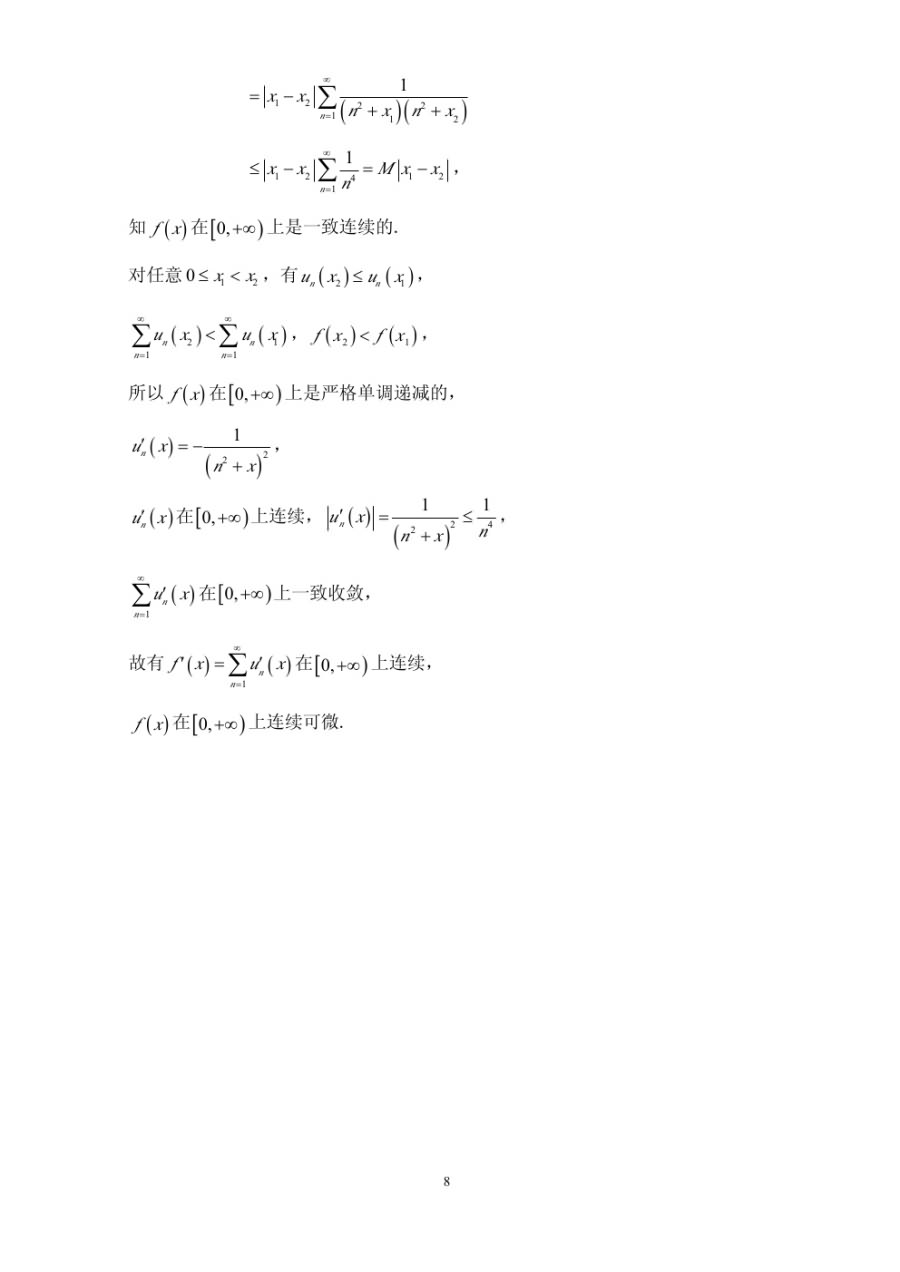 $= |x_1 - x_2| \sum_{n=1}^{\infty} \frac{1}{(n^2 + x_1)(n^2 + x_2)}$
$\leq |x_1 - x_2| \sum_{n=1}^{\infty} \frac{1}{n^4} = M|x_1 - x_2|$，
知 $f(x)$ 在 $[0, +\infty)$ 上是一致连续的.
对任意 $0 \leq x_1 < x_2$，有 $u_n(x_2) \leq u_n(x_1)$，
$\sum_{n=1}^{\infty} u_n(x_2) < \sum_{n=1}^{\infty} u_n(x_1)$，$f(x_2) < f(x_1)$，
所以 $f(x)$ 在 $[0, +\infty)$ 上是严格单调递减的，
$u_n'(x) = -\frac{1}{(n^2 + x)^2}$，
$u_n'(x)$ 在 $[0, +\infty)$ 上连续，$|u_n'(x)| = \frac{1}{(n^2 + x)^2} \leq \frac{1}{n^4}$，
$\sum_{n=1}^{\infty} u_n'(x)$ 在 $[0, +\infty)$ 上一致收敛，
故有 $f'(x) = \sum_{n=1}^{\infty} u_n'(x)$ 在 $[0, +\infty)$ 上连续，
$f(x)$ 在 $[0, +\infty)$ 上连续可微.
8